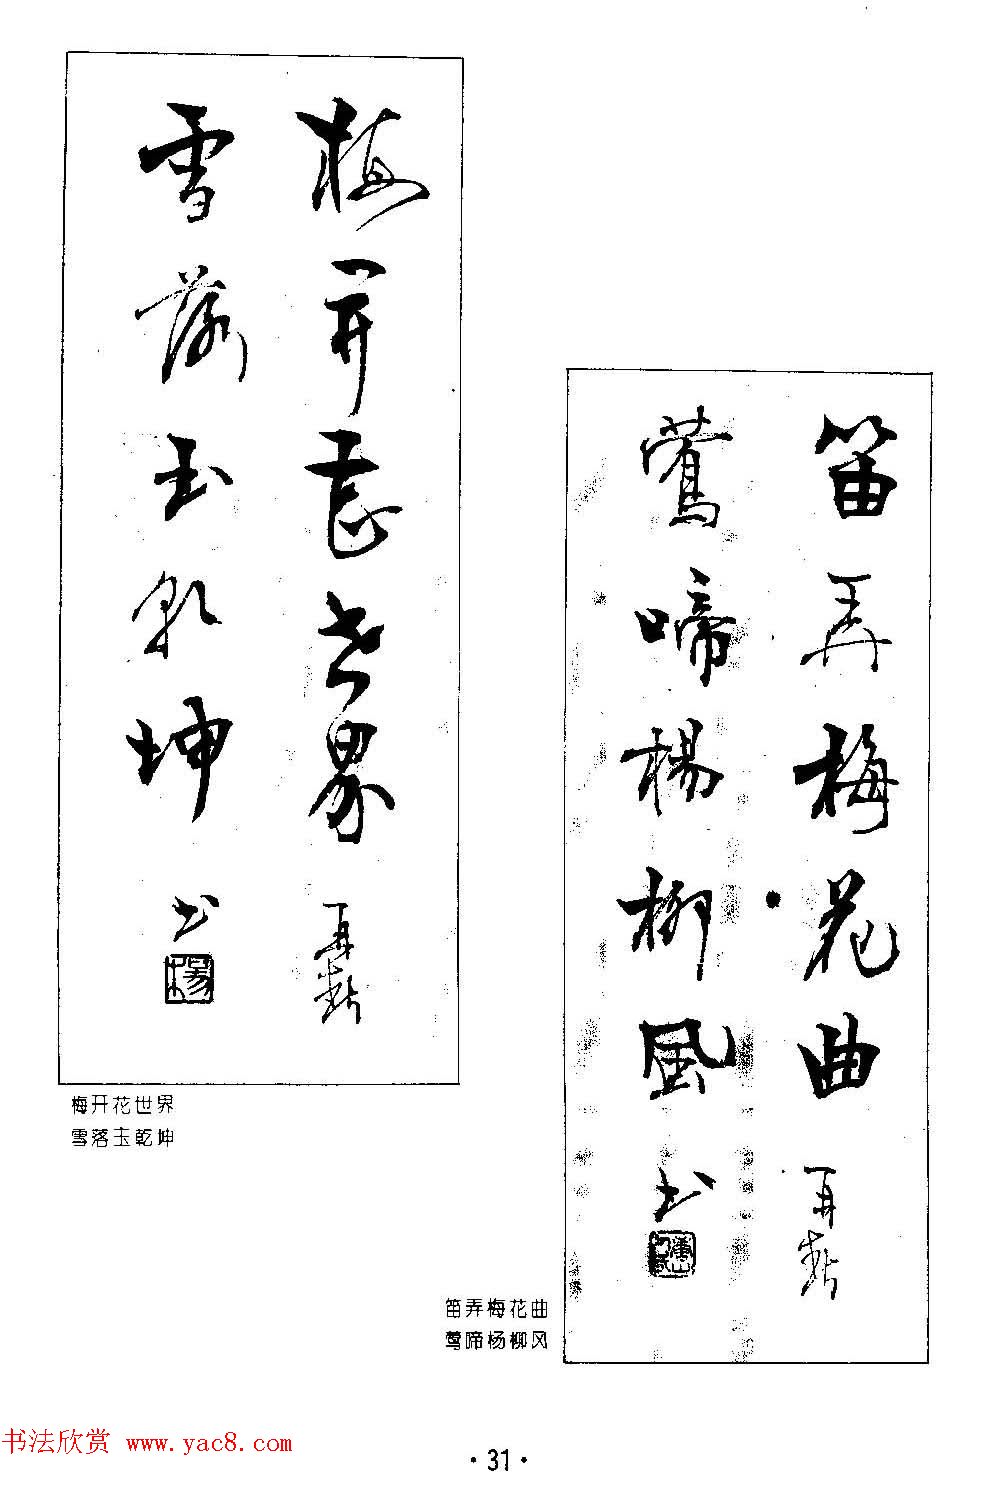 梅開花世界
雪落玉乾坤
书
楊
梅开花世界
雪落玉乾坤
笛弄梅花曲
鶯啼楊柳風
书
笛弄梅花曲
莺啼杨柳风
书法欣赏 www.yac8.com
·31·